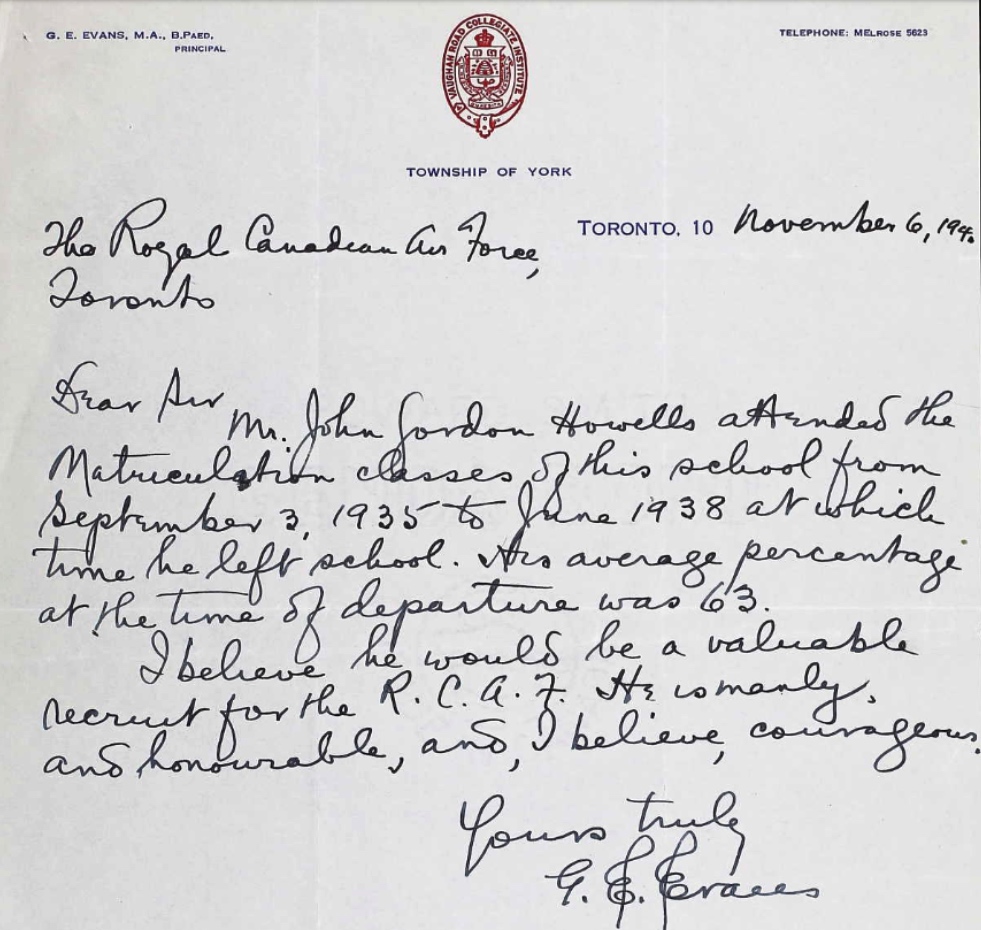 G. E. EVANS, M.A., B.PAED,
PRINCIPAL
VAUGHAN ROAD COLLEGIATE INSTITUTE
TELEPHONE: MELROSE 5623
TOWNSHIP OF YORK
TORONTO, 10 November 6, 194
The Royal Canadian Air Force,
Toronto
Dear Sir
Mr. John Gordon Howells attended the
Matriculation classes of this school from
September 3, 1935 to June 1938 at which
time he left school. His average percentage
at the time of departure was 63.
I believe he would be a valuable
recruit for the R. C. A. F. He is manly,
and honourable, and, I believe, courageous.
Yours truly
G. E. Evans